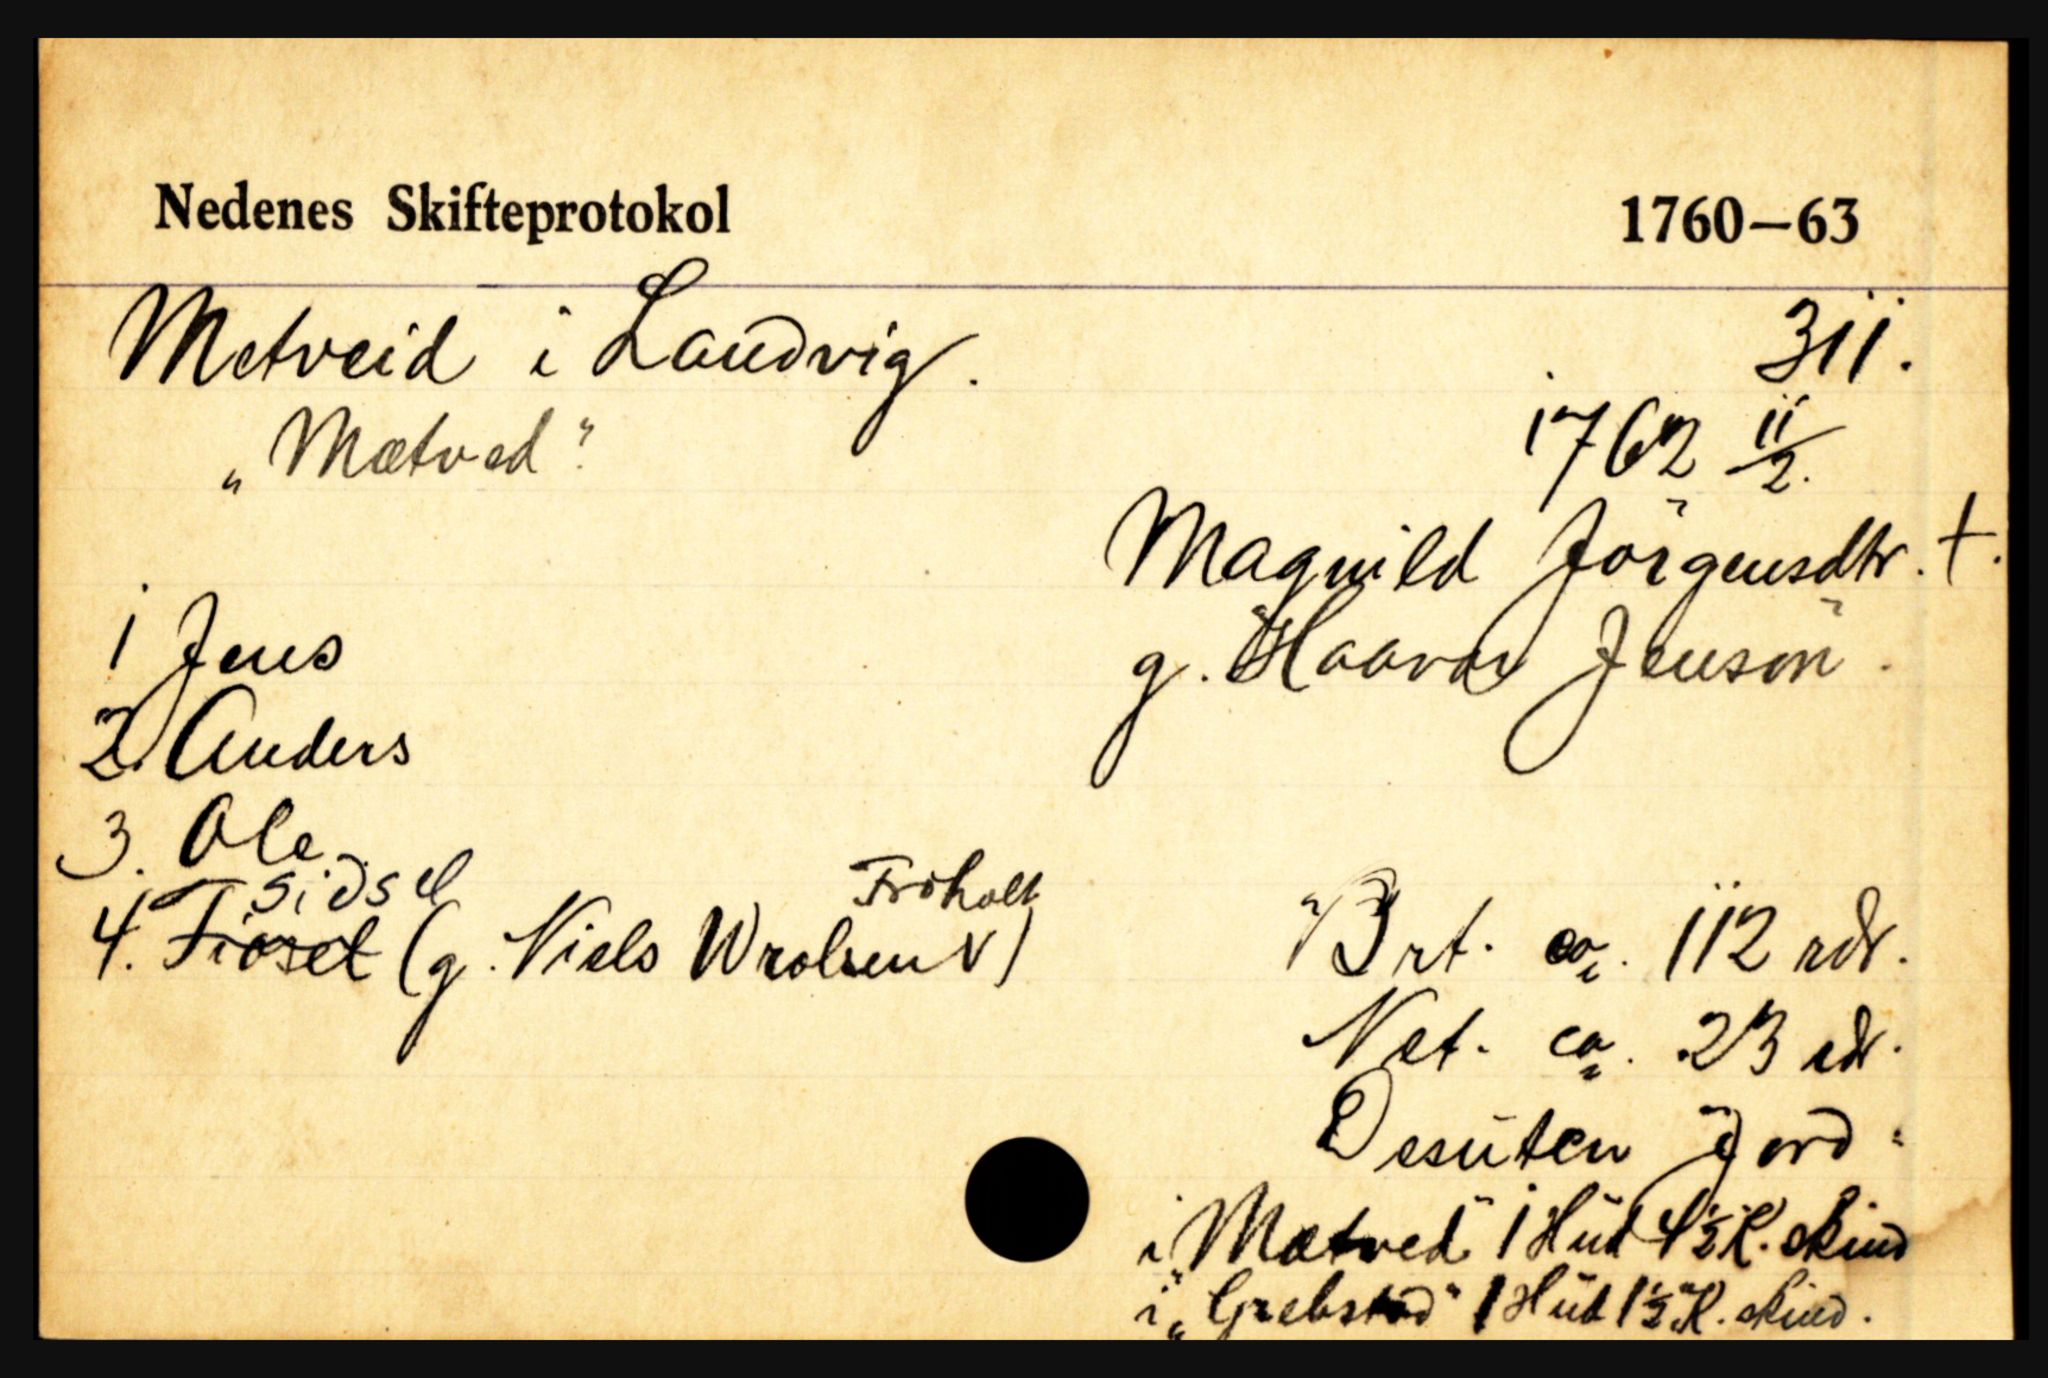 Nedenes Skifteprotokol 1760—63
Metveid i Landvig. 311.
„Mætved" 1762 11/2.
Magnild Jörgensdtr. †.
1 Jens g. Haavor Jensön.
2. Anders
3. Ole
Sidsel Fröholt
4. Tiosel (g. Niels Wrolsen)
Brt. ca. 112 rdr.
Net. ca. 23 rdr.
Desuten Jord:
i Mætved" 1 Hud 4½ K. skind
i „Grebstad" 1 Hud 1½ K. skind.